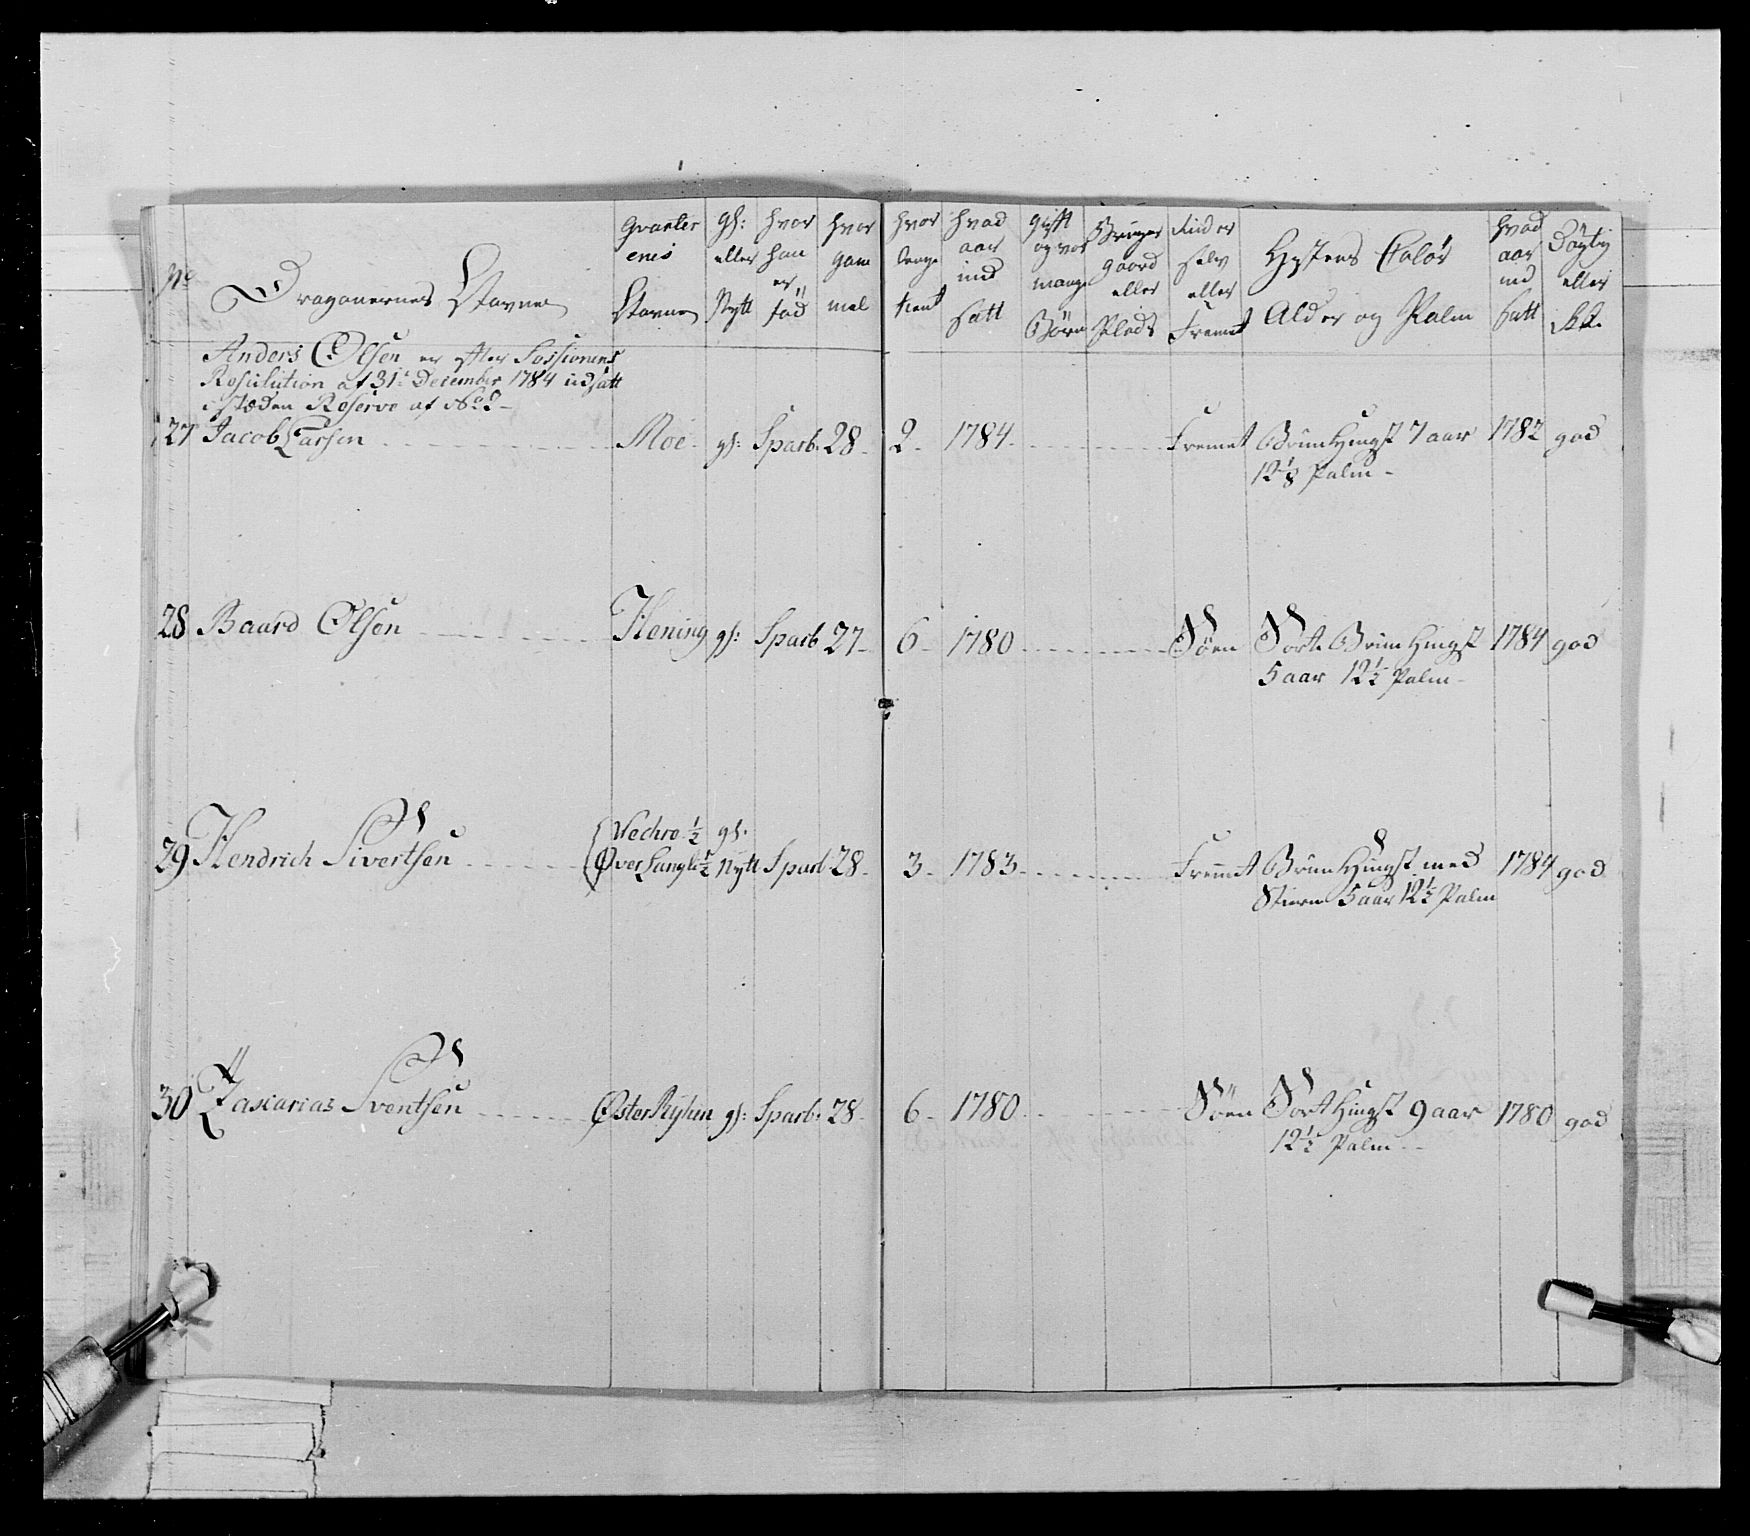 No
Dragonernes Navne
Qvarter
enes
Navne
gl:
eller
Nytt
hvor
han
er
föd
hvor
gam
mel
hvor
lenge
tient
hvad
aar
ind
satt
gift
og vor
mange
Börn
Bruger
gaard
eller
Plads
Rider
selv
eller
Fremet
Hæstens Colör
Alder og Palm
hvad
aar
ind
satt
Dögtig
eller
Anders Olsen er efter Sessionens
Resolution af 31te December 1784 udsatt
i stæden Reserve af No 2
27 Jacob Larsen Moe gl: Sparb: 28 2 1784 Fremet Brun Hingst 7 aar 1782 god
12 1/8 Palm
28 Baard Olsen Hening gl: Sparb 27 6 1780 Söen Sort Brun Hingst 1784 god
5 aar 12 1/2 Palm
29 Hendrich Sivertsen Vechre 1/2 gl.
Over Langli 1/2 Nytt Sparb 28 3 1783 Fremet Brun Hingst med 1784 god
Stiern 5 aar 12 1/2 Palm
30 Zascarias Sventsen Öster Ryhen gl: Sparb: 28 6 1780 Söen Sort Hingst 9 aar 1780 god
12 1/2 Palm